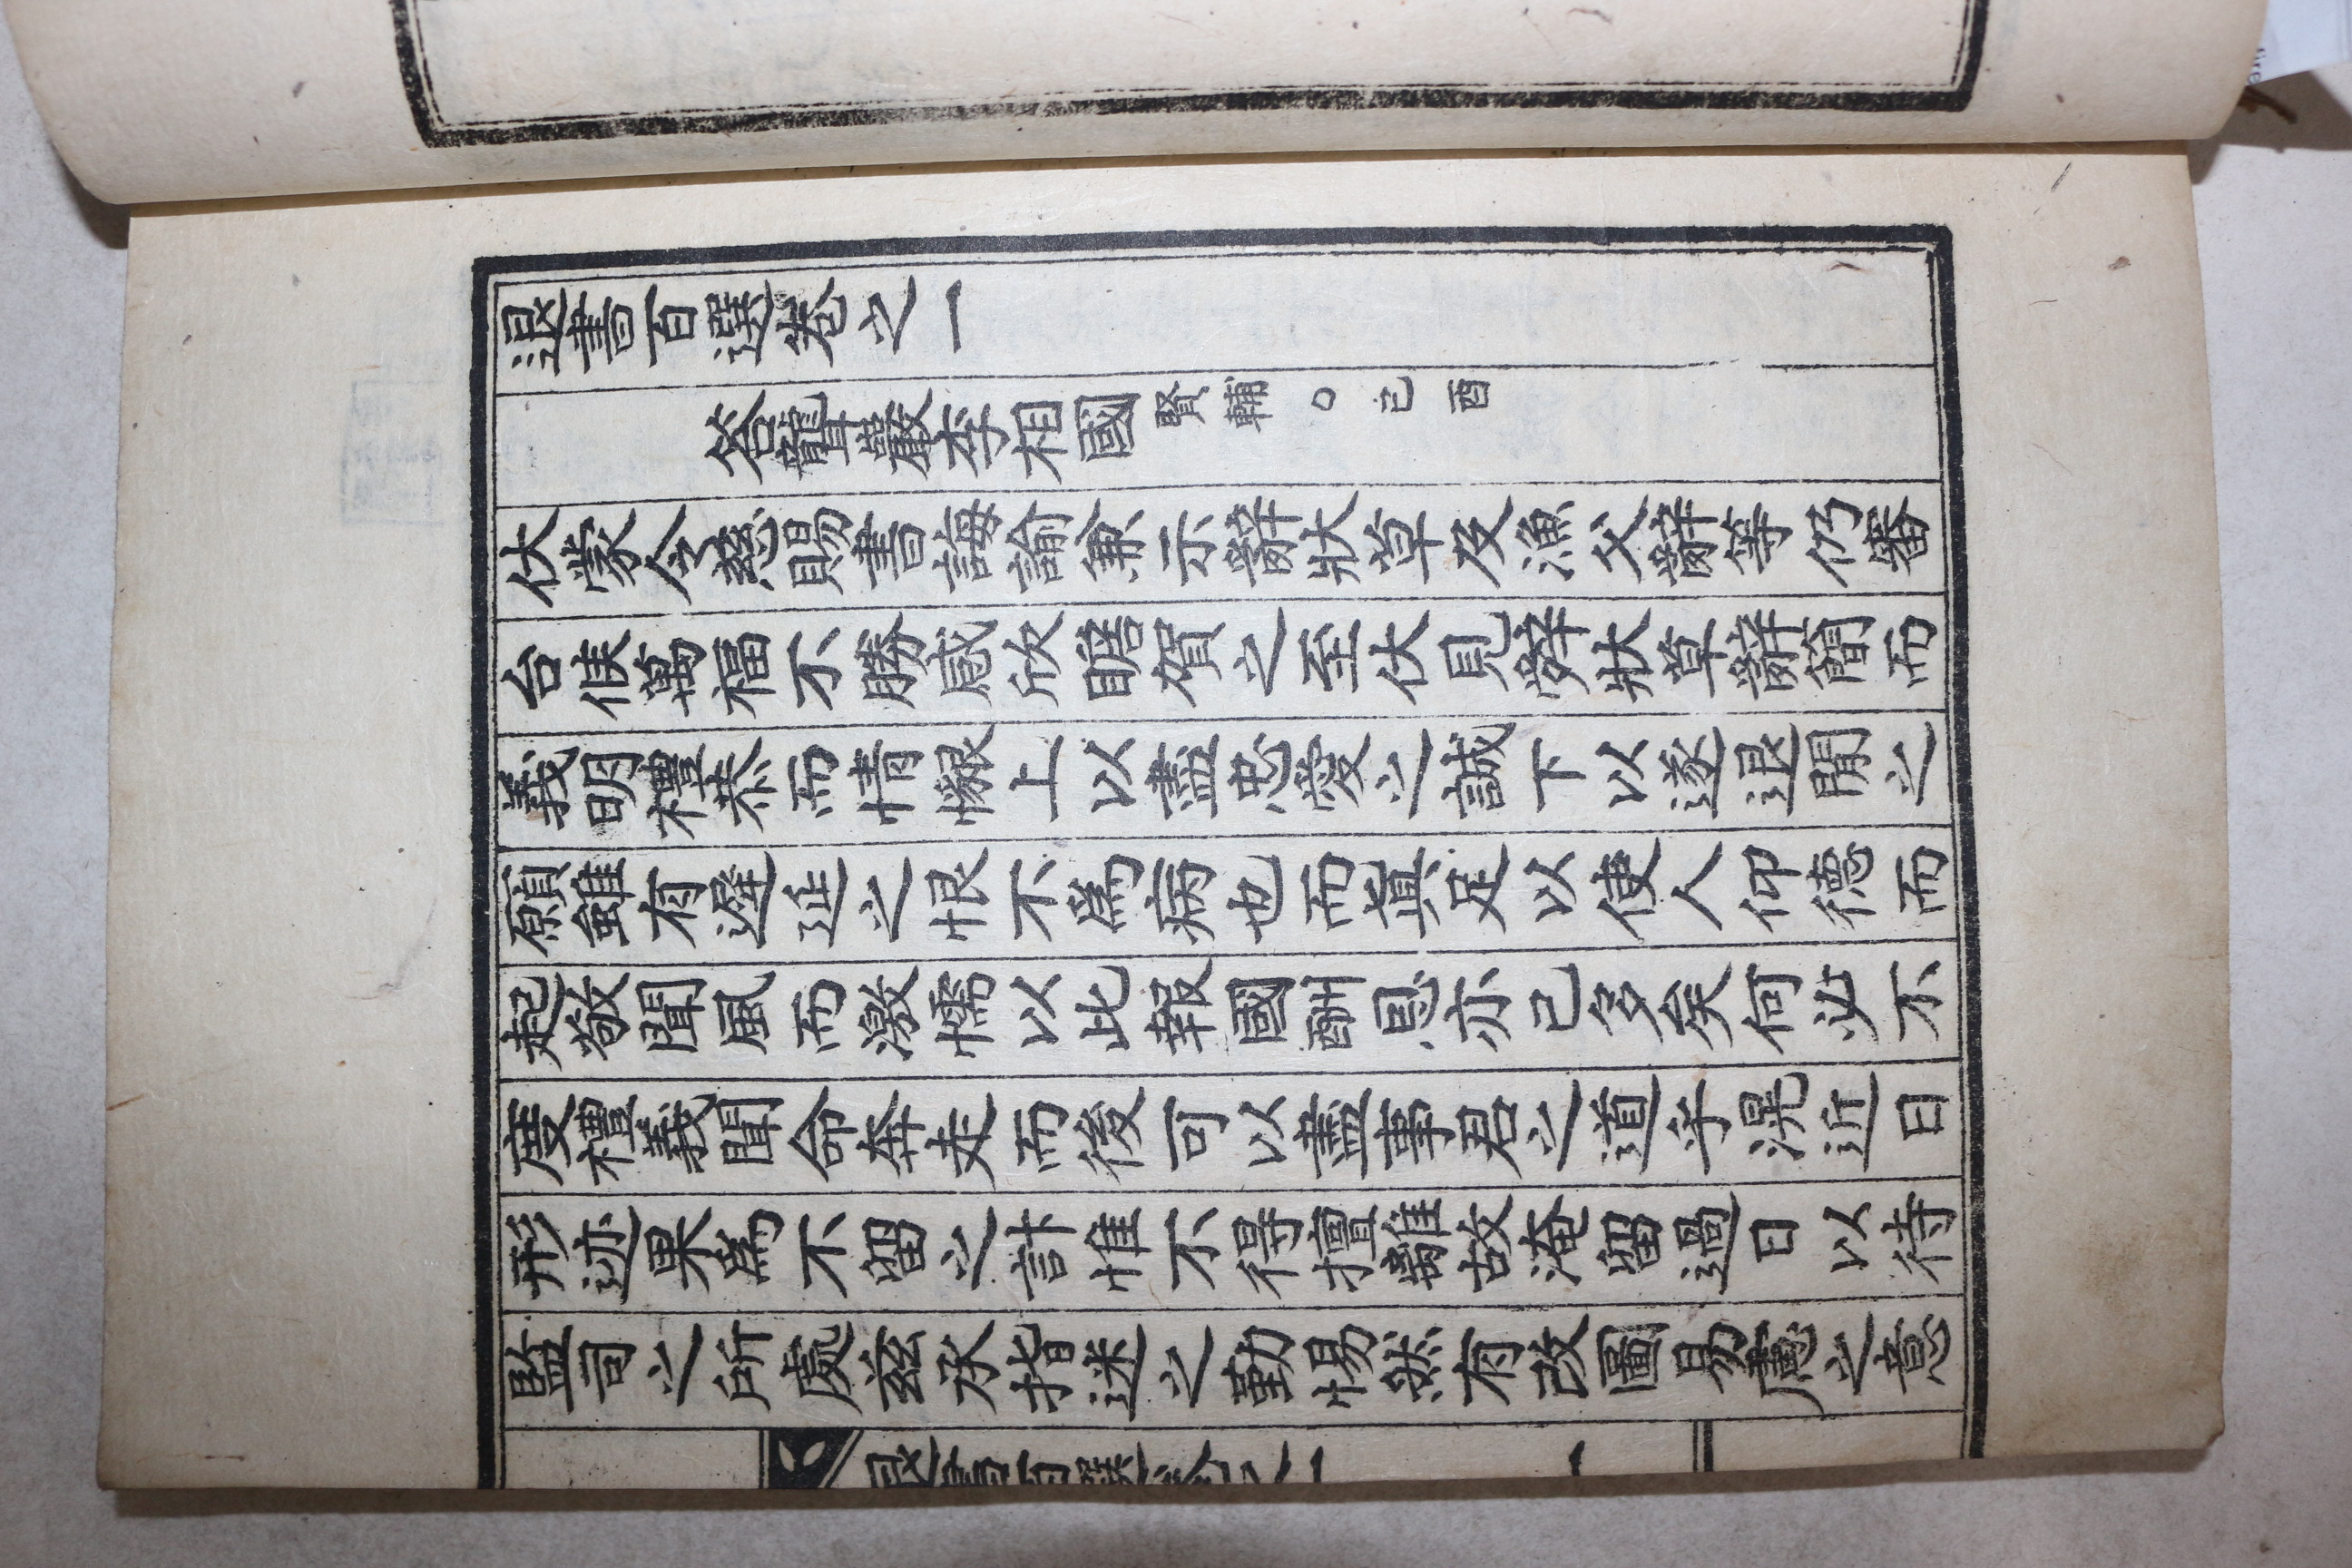 退書百選卷之一
答聾巖李相國賢輔○己酉
伏蒙令慈賜書誨諭兼示辭狀草及漁父辭等仍審
台候萬福不勝感欣贍賀之至伏見辭狀草辭簡而
義明禮恭而情懇上以盡忠愛之誠下以遂退閒之
願雖有遲延之恨不爲病也而眞足以使人仰德而
起敬聞風而激懦以此報國酬恩亦已多矣何必不
度禮義聞命奔走而後可以盡事君之道乎滉近日
形迹果爲不留之計惟不得擅離故淹留過日以待
監司之所處玆承指迷之勤惕然有改圖易慮之意
退書百選卷之一 一